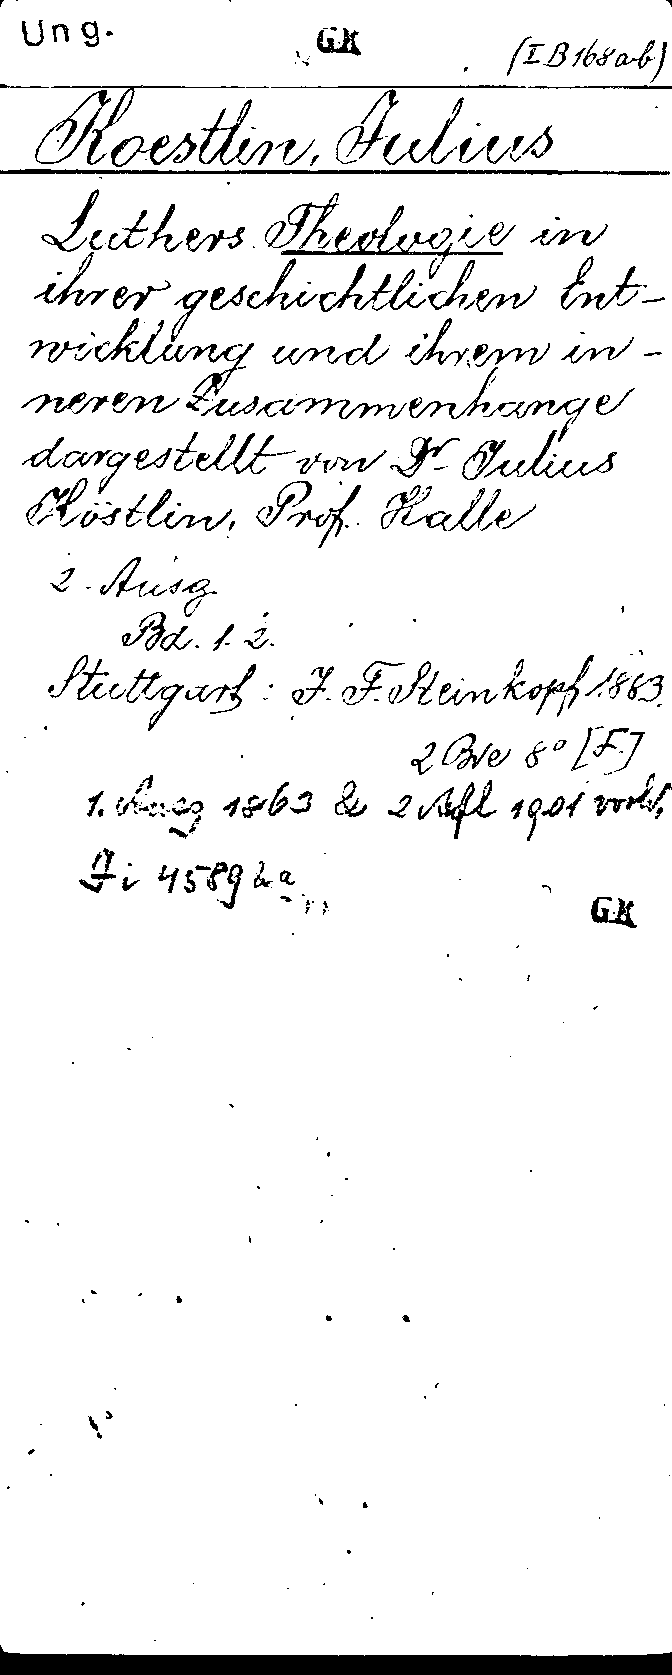 Ung. GK (I B 168 a-b)
Koestlin, Julius
Luthers Theologie in
ihrer geschichtlichen Ent-
wicklung und ihrem in-
neren Zusammenhange
dargestellt von Dr. Julius
Köstlin, Prof. Halle
2. Ausg.
Bd. 1. 2.
Stuttgart: J. F. Steinkopf 1863.
2 Bde 8° [F.]
1. Ausg 1863 & 2 Aufl 1901 vorh.
Fi 4589 & a
GK